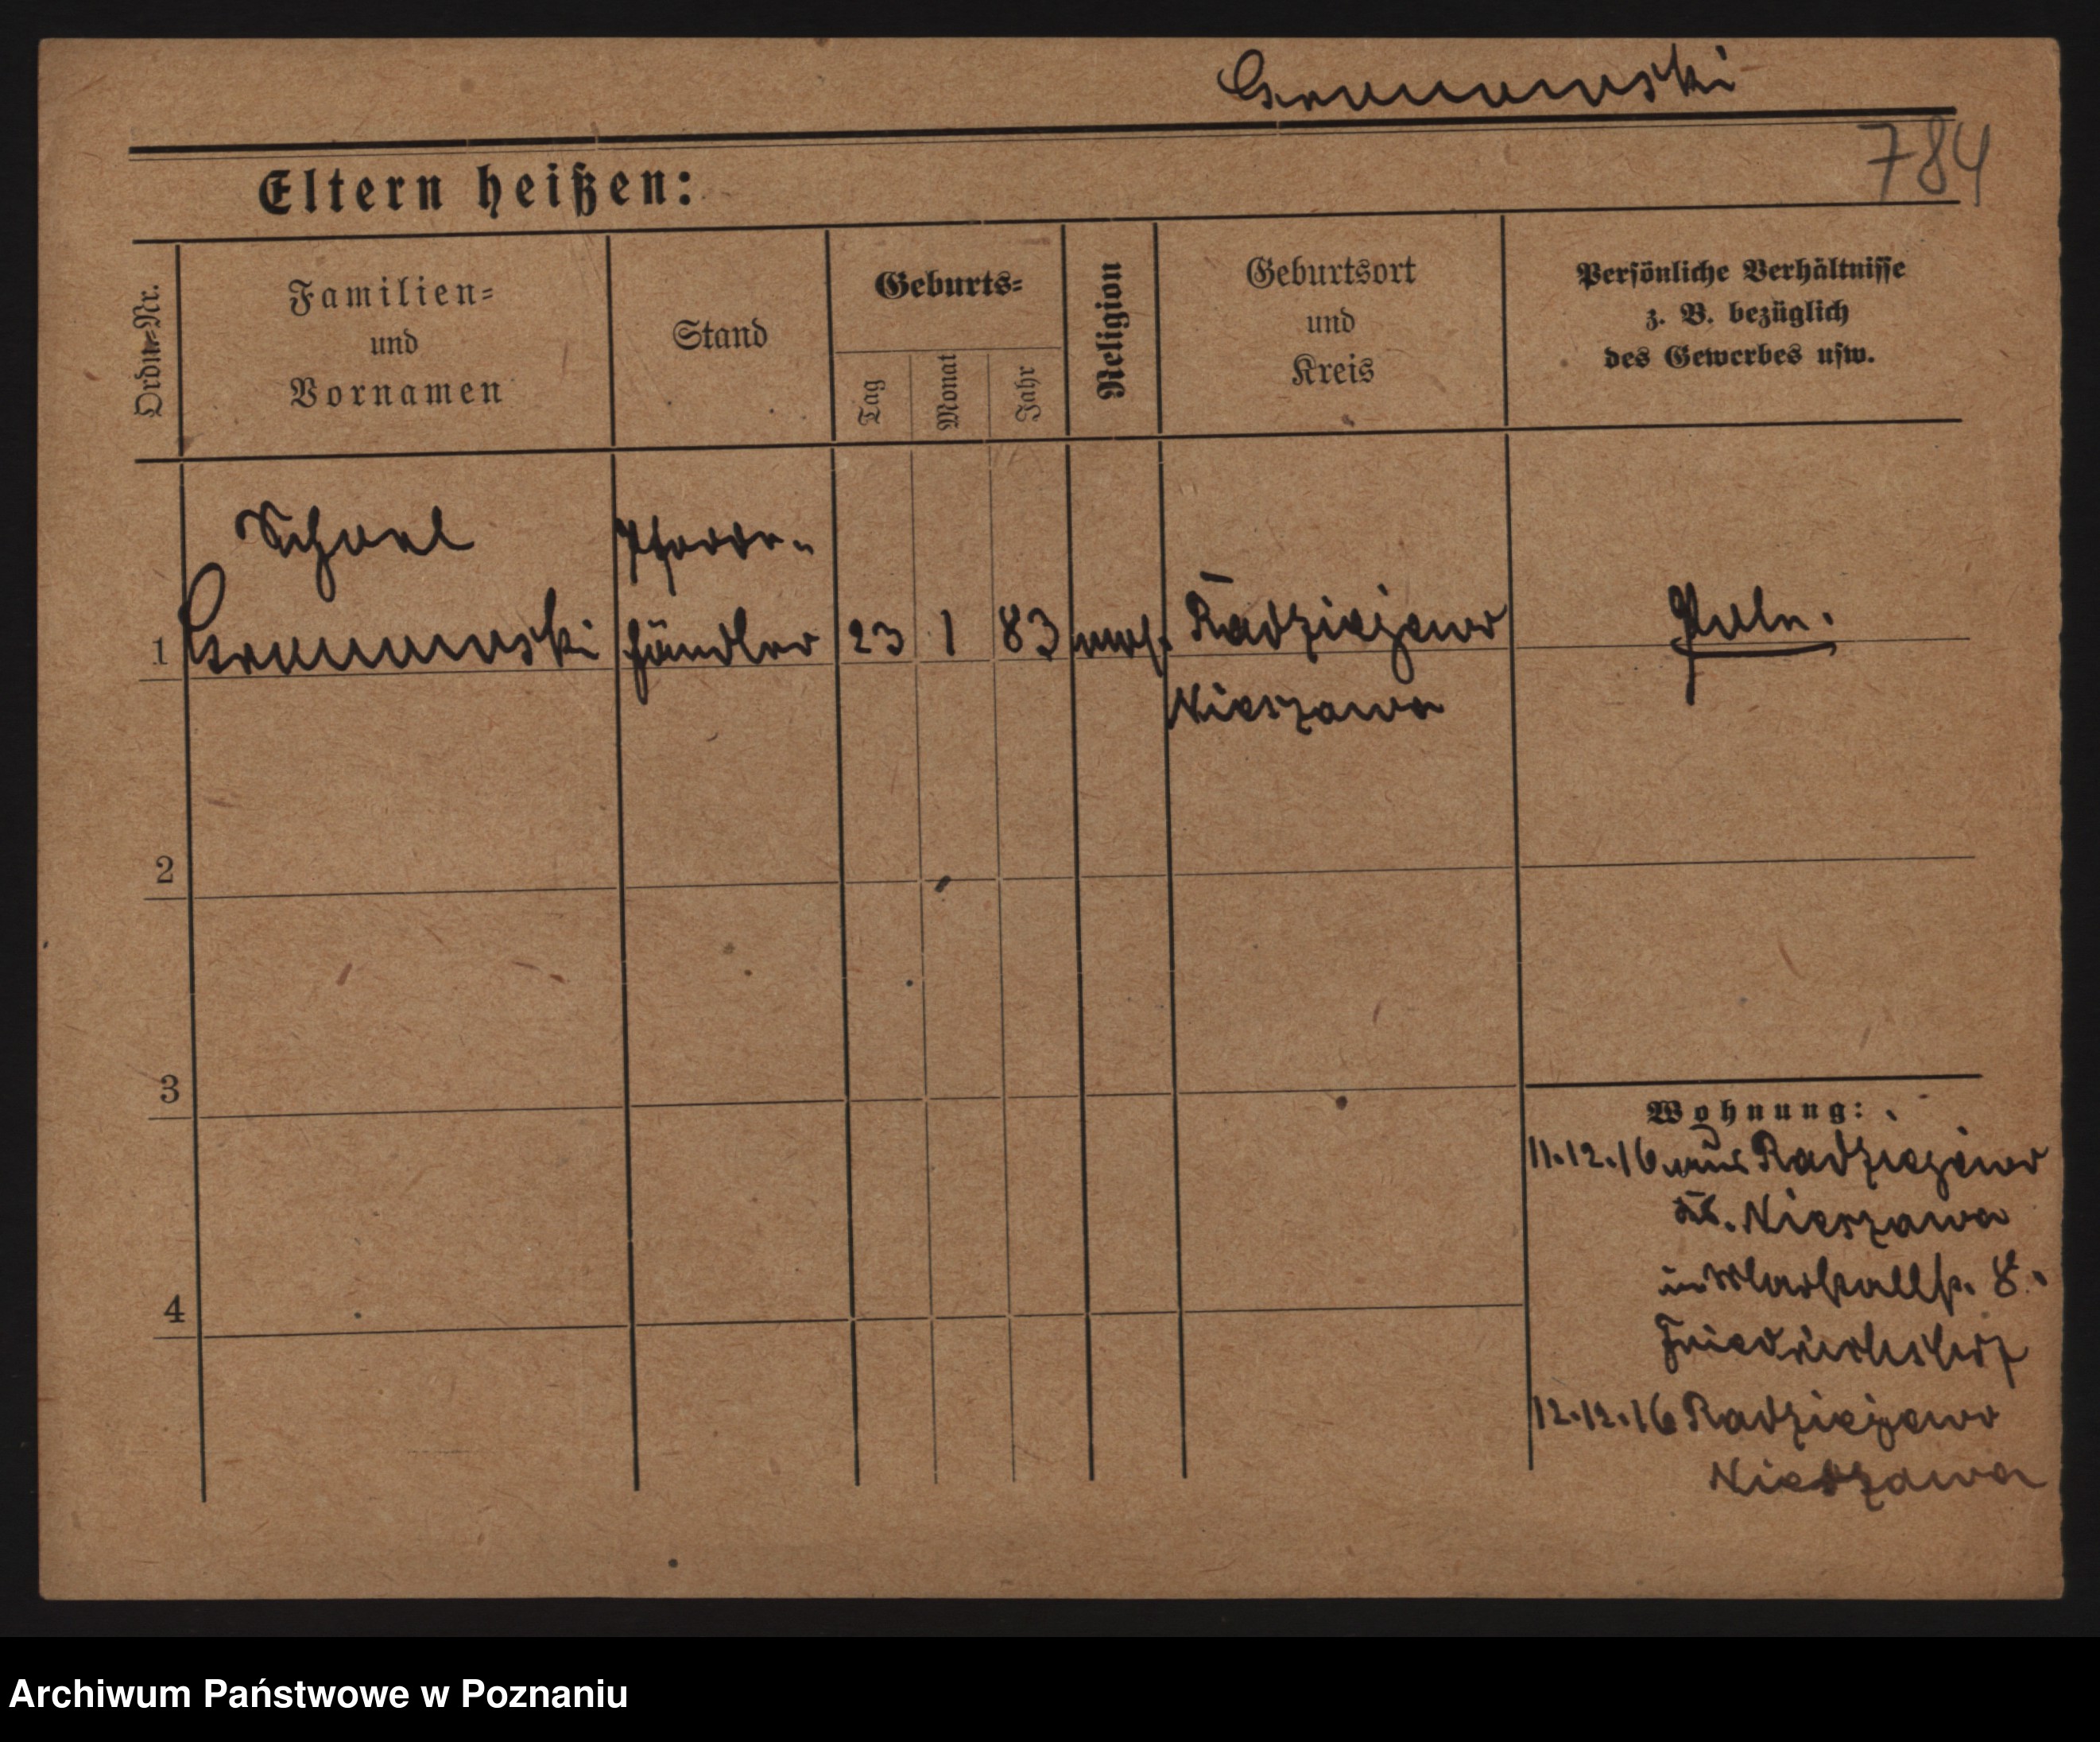 Gramanowski
784
Eltern heißen:
Ordn.=Nr.
Familien=
und
Vornamen
Stand
Geburts=
Tag
Monat
Jahr
Religion
Geburtsort
und
Kreis
Persönliche Verhältnisse
z. B. bezüglich
des Gewerbes usw.
Pferde-
1
händler
23
1
83
mos.
Radziejewo
Pole.
Nieszawa
2
3
4
Wohnung:
11.12.16 aus Radziejewo
Kr. Nieszawa
8.
12.12.16 Radziejewo
Nieszawa
Archiwum Państwowe w Poznaniu